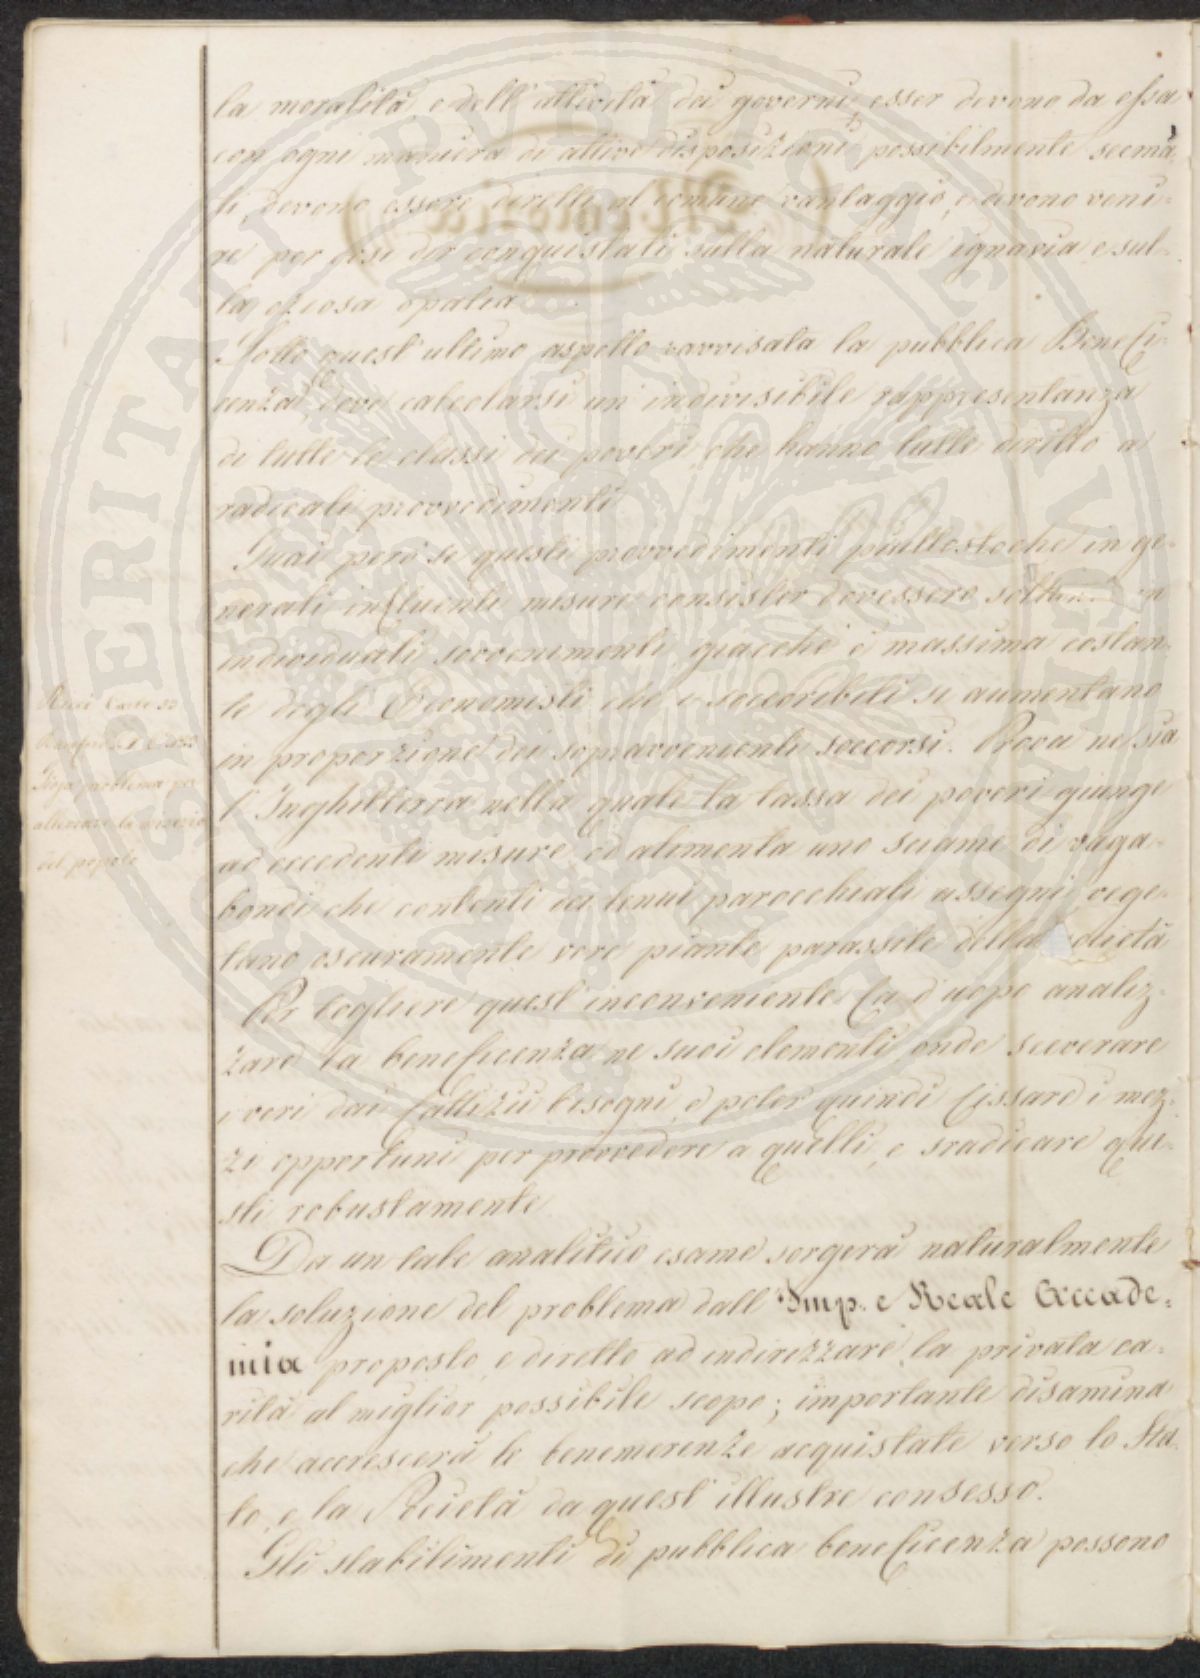 la moralità, e dell'attività dei governi; esser devono da essa
con ogni maniera di attive disposizioni possibilmente scema
ti, devono essere diretti al comune vantaggio, e devono veni=
re per così dir conquistati sulla naturale ignavia, e sul=
la oziosa apatia.
Sotto quest'ultimo aspetto ravvisata la pubblica Benefi=
cenza, deve calcolarsi un'indivisibile rappresentanza
di tutte le classi dei poveri, che hanno tutte diritto a
radicali provvedimenti
Guai però se questi provvedimenti piuttostochè in ge=
nerali influenti misure consister dovessero in
individuali sovvenimenti, giacchè è massima costan=
te degli Economisti che i soccoribili si aumentano
in proporzione dei sopravvenienti soccorsi. Prova ne sia
l'Inghilterra nella quale la tassa dei poveri giunge
ad eccedenti misure, ed alimenta uno sciame di vaga=
bondi che contenti dei tenui parocchiali assegni vege=
tano oscuramente vere piante parassite della società
del popolo
Per togliere quest'inconveniente fa d'uopo analiz=
zare la beneficenza ne' suoi elementi onde sceverare
i veri dai fattizii bisogni, e poter quindi fissare i mez=
zi opportuni per provvedere a quelli, e sradicare que=
sti robustamente
Da un tale analitico esame sorgerà naturalmente
la soluzione del problema dall'Imp. e Reale Accade=
mia proposto, e diretto ad indirizzare la privata ca=
rità al miglior possibile scopo; importante disamina
che accrescerà le benemerenze acquistate verso lo Sta=
to, e la Società da quest'illustre consesso.
Gli stabilimenti di pubblica beneficenza possono